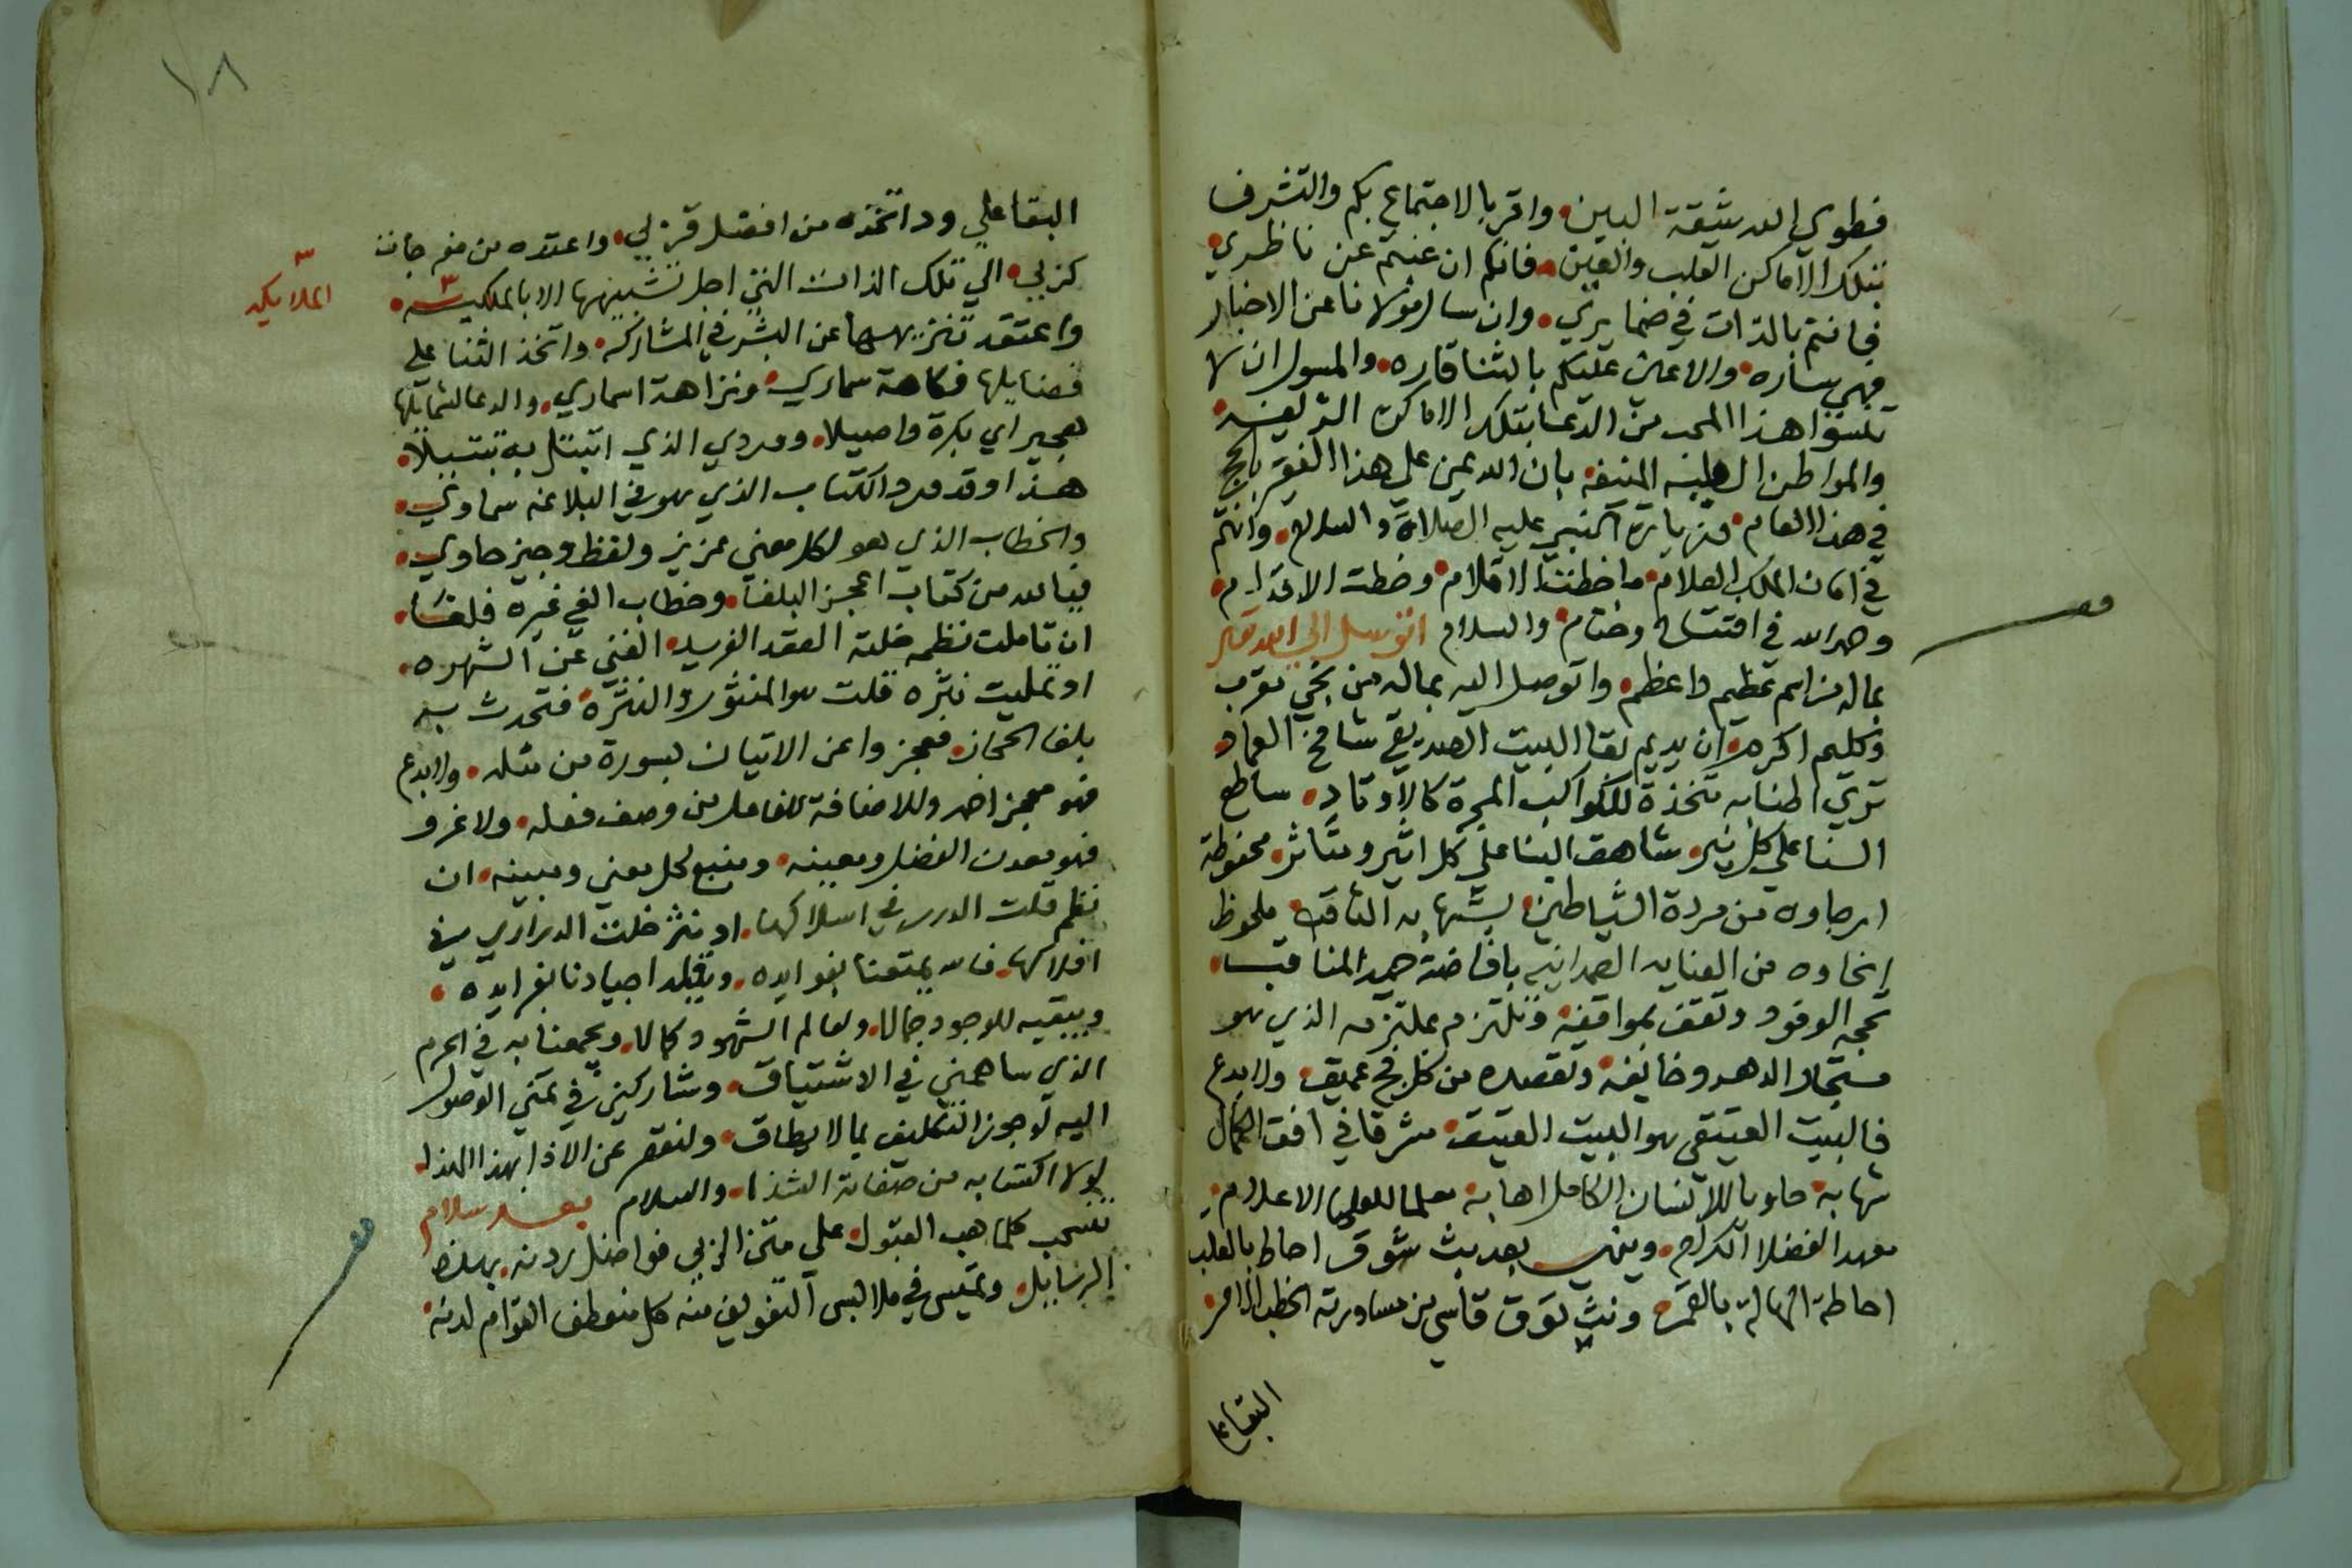 فطوي الله شقة البين واقر بالاجتماع بكم والتشرف
بتلك الاماكن القلب والعين فانكم ان غبتم عن ناظري
فانتم بالذات في ضمايري وان سال مولانا عن الاخبار
فهي ساره والاعين عليكم بالثنا قاره والمسول ان لا
تنسوا هذا المحب من الدعا بتلك الاماكن الشريفه
والمواطن المنيفه بان الله يمن على هذا الفقير بالحج
في هذا العام وزيارة النبي عليه الصلاة والسلام وانتم
في امان الملك العلام ما خطت الاقلام وخطت الاقدام
وحمد الله في افتتاح وختام والسلام اتوسل الى الله تعالى
بماله من اسم عظيم واعظم واتوصل اليه بماله من نجي مقرب
وكليم اكرم ان يديم بقا البيت الصديقي شامخ العماد
تري اطنابه متخذة للكواكب المجرة كالاوتاد ساطع
السنا علي كل نير شاهق البنا علي كل اثير ومتاثر محفوظة
ارجاوه من مردة الشياطين بشهابه الثاقب ملحوظ
انحاوه من العنايه الصمدانيه بافاضة حميد المناقب
تحجه الوفود وتقف بمواقفه وتلتزم بملتزمه الذي هو
مستجار الدهر وخايفه وتقصده من كل فج عميق ولا بدع
فالبيت العتيقي هو البيت العتيق مشرقا في افق الكمال
شهابه حاويا للانسان الكامل اهابه معلما للعلما الاعلام
معهد الفضلا الكرام وينهي بعد بث شوق احاط بالقلب
احاطة الهالة بالقمر ونث توق قاسي من مساورته الخطب الامر
البقا على
١٨
البقا علي ود اتخذه من افضل قربي واعتده من
كربي الي تلك الذات التي اجل تشبيهها الا بالملكيه
الملايكيه
واعتقد تنزيهها عن البشر في المشاركه واتخذ الثنا على
فضايلها فكاهة سماري ونزاهة اسماري والدعا لشمايلها
هجيراي بكرة واصيلا ووردي الذي اتبتل به تبتيلا
هذا وقد ورد الكتاب الذي هو في البلاغه سماوي
والخطاب الذي هو لكل معني عزيز ولفظ وجيز حاوي
فيالله من كتاب اعجز البلغا وخطاب الغي غيره فلغا
ان تاملت نظمه خلته العقد الفريد الغني عن الشهره
او تمليت نثره قلت هو المنثور والنثره فتحدث به
بلغا الحجاز فعجزوا عن الاتيان بسورة من مثله ولا بدع
فهو معجز احمد وللاضافة للفاعل من وصف فعله ولا غرو
فهو معدن الفضل ومعينه ومنبع لحل معني ومبينه ان
نظم قلت الدرر في اسلاكها او نثر خلت الدراري في
افلاكها فالله يمتعنا بفوايده ويقلد اجيادنا بفرايده
ويبقيه للوجود جمالا ولعالم الشهود كمالا ويجمعنا به في الحرم
الذي ساهمني في الاشتياق وشاركني في تمني الوصول
اليه لو جوز التكليف بما لا يطاق ولنقصر عن الاذا بهذا الهذا
لولا اكتسابه من صفاته الشذا والسلام بعد سلام
تنسحب كلما هب القبول علي متن الربي فواضل ردنه بهذه
الرسايل وتميس في ملابس التفويف منه كل منعطف القوام لدنه